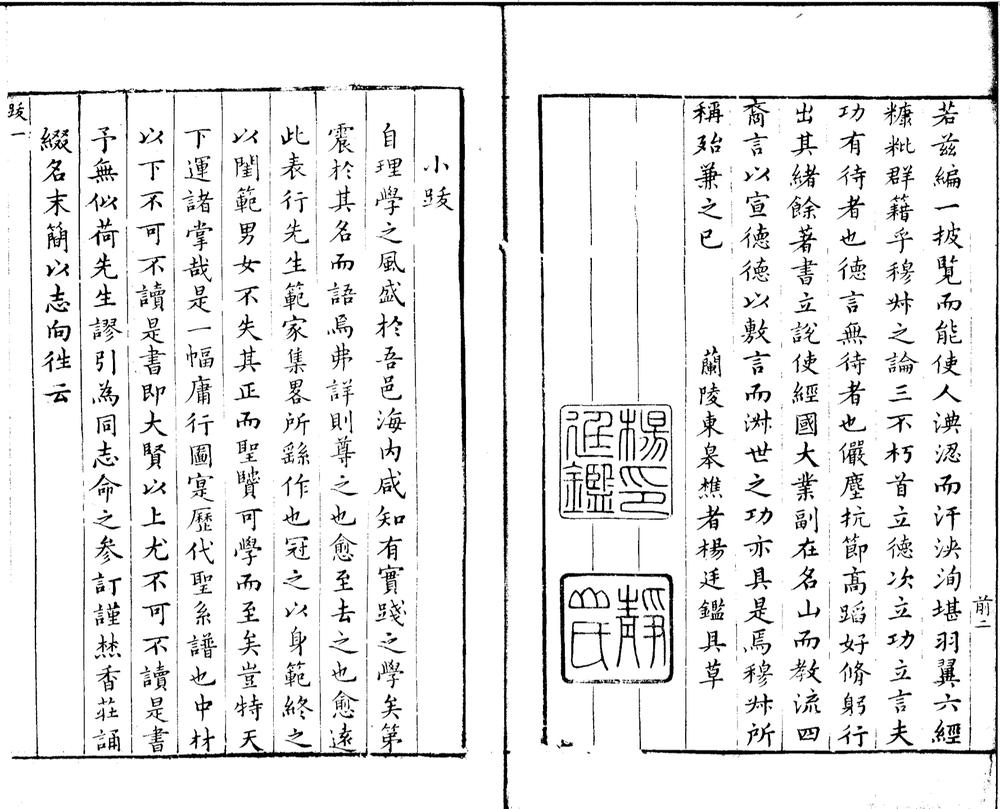 若茲編一披覽而能使人淟涊而汗泱洵堪羽翼六經
糠粃群籍乎穆叔之論三不朽首立德次立功立言夫
功有待者也德言無待者也儼塵抗節高蹈好脩躬行
出其緒餘著書立說使經國大業副在名山而教流四
裔言以宣德德以敷言而淑世之功亦具是焉穆叔所
稱殆兼之已　蘭陵東皋樵者楊廷鑑具草
楊廷鑑印
靜山氏
前二
小䟦
自理學之風盛於吾邑海內咸知有實踐之學矣第
震於其名而語焉弗詳則尊之也愈至去之也愈遠
此表行先生範家集畧所繇作也冠之以身範終之
以閨範男女不失其正而聖賢可學而至矣豈特天
下運諸掌哉是一幅庸行圖寔歷代聖系譜也中材
以下不可不讀是書即大賢以上尤不可不讀是書
予無似荷先生謬引為同志命之參訂謹爇香莊誦
綴名末簡以志向徃云
䟦一